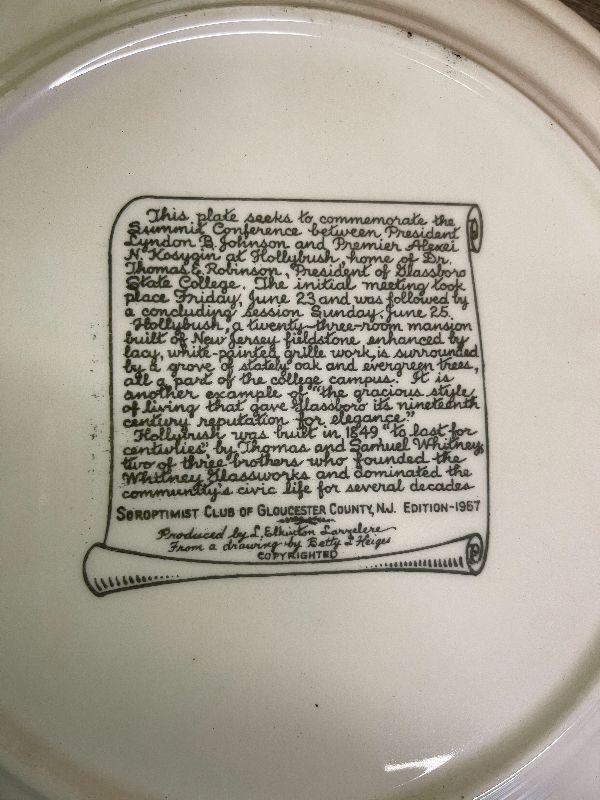 This plate seeks to commemorate the
Summit Conference between President
Lyndon B. Johnson and Premier Alexei
N. Kosygin at Hollybush, home of Dr.
Thomas E. Robinson, President of Glassboro
State College. The initial meeting took
place Friday, June 23 and was followed by
a concluding session Sunday, June 25.
Hollybush, a twenty-three-room mansion
built of New Jersey fieldstone enhanced by
lacy, white-painted grille work, is surrounded
by a grove of stately oak and evergreen trees,
all a part of the college campus. It is
another example of "the gracious style
of living that gave Glassboro its nineteenth
century reputation for elegance."
Hollybush was built in 1849 "to last for
centuries" by Thomas and Samuel Whitney,
two of three brothers who founded the
Whitney Glassworks and dominated the
community's civic life for several decades
SOROPTIMIST CLUB OF GLOUCESTER COUNTY, N.J. EDITION-1967
Produced by L. Elkinton Larzelere
From a drawing by Betty L Heiges
COPYRIGHTED